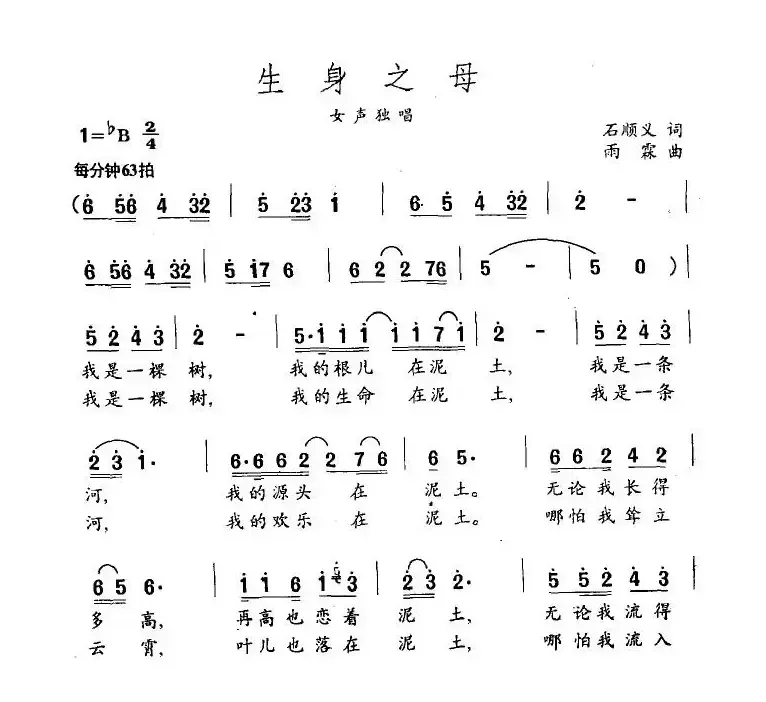 生身之母
女声独唱
1=♭B 2/4
石顺义 词
每分钟63拍
雨霖 曲
(6 56 4 32 | 5 23 1 | 6· 5 4 32 | 2 - |
6 56 4 32 | 5 17 6 | 6 2 2 76 | 5 - | 5 0 ) |
5 2 4 3 | 2 - | 5·1 1 1 1 1 7 1 | 2 - | 5 2 4 3 |
我是一棵 树, 我的根儿 在泥 土, 我是一条
我是一棵 树, 我的生命 在泥 土, 我是一条
2 3 1· | 6·6 6 2 2 7 6 | 6 5· | 6 6 2 4 2 |
河, 我的源头 在 泥 土。 无论我长得
河, 我的欢乐 在 泥 土。 哪怕我耸立
6 5 6· | 1 1 6 1 3 | 2 3 2· | 5 5 2 4 3 |
多 高, 再高也恋着 泥 土, 无论我流得
云 霄, 叶儿也落在 泥 土, 哪怕我流入